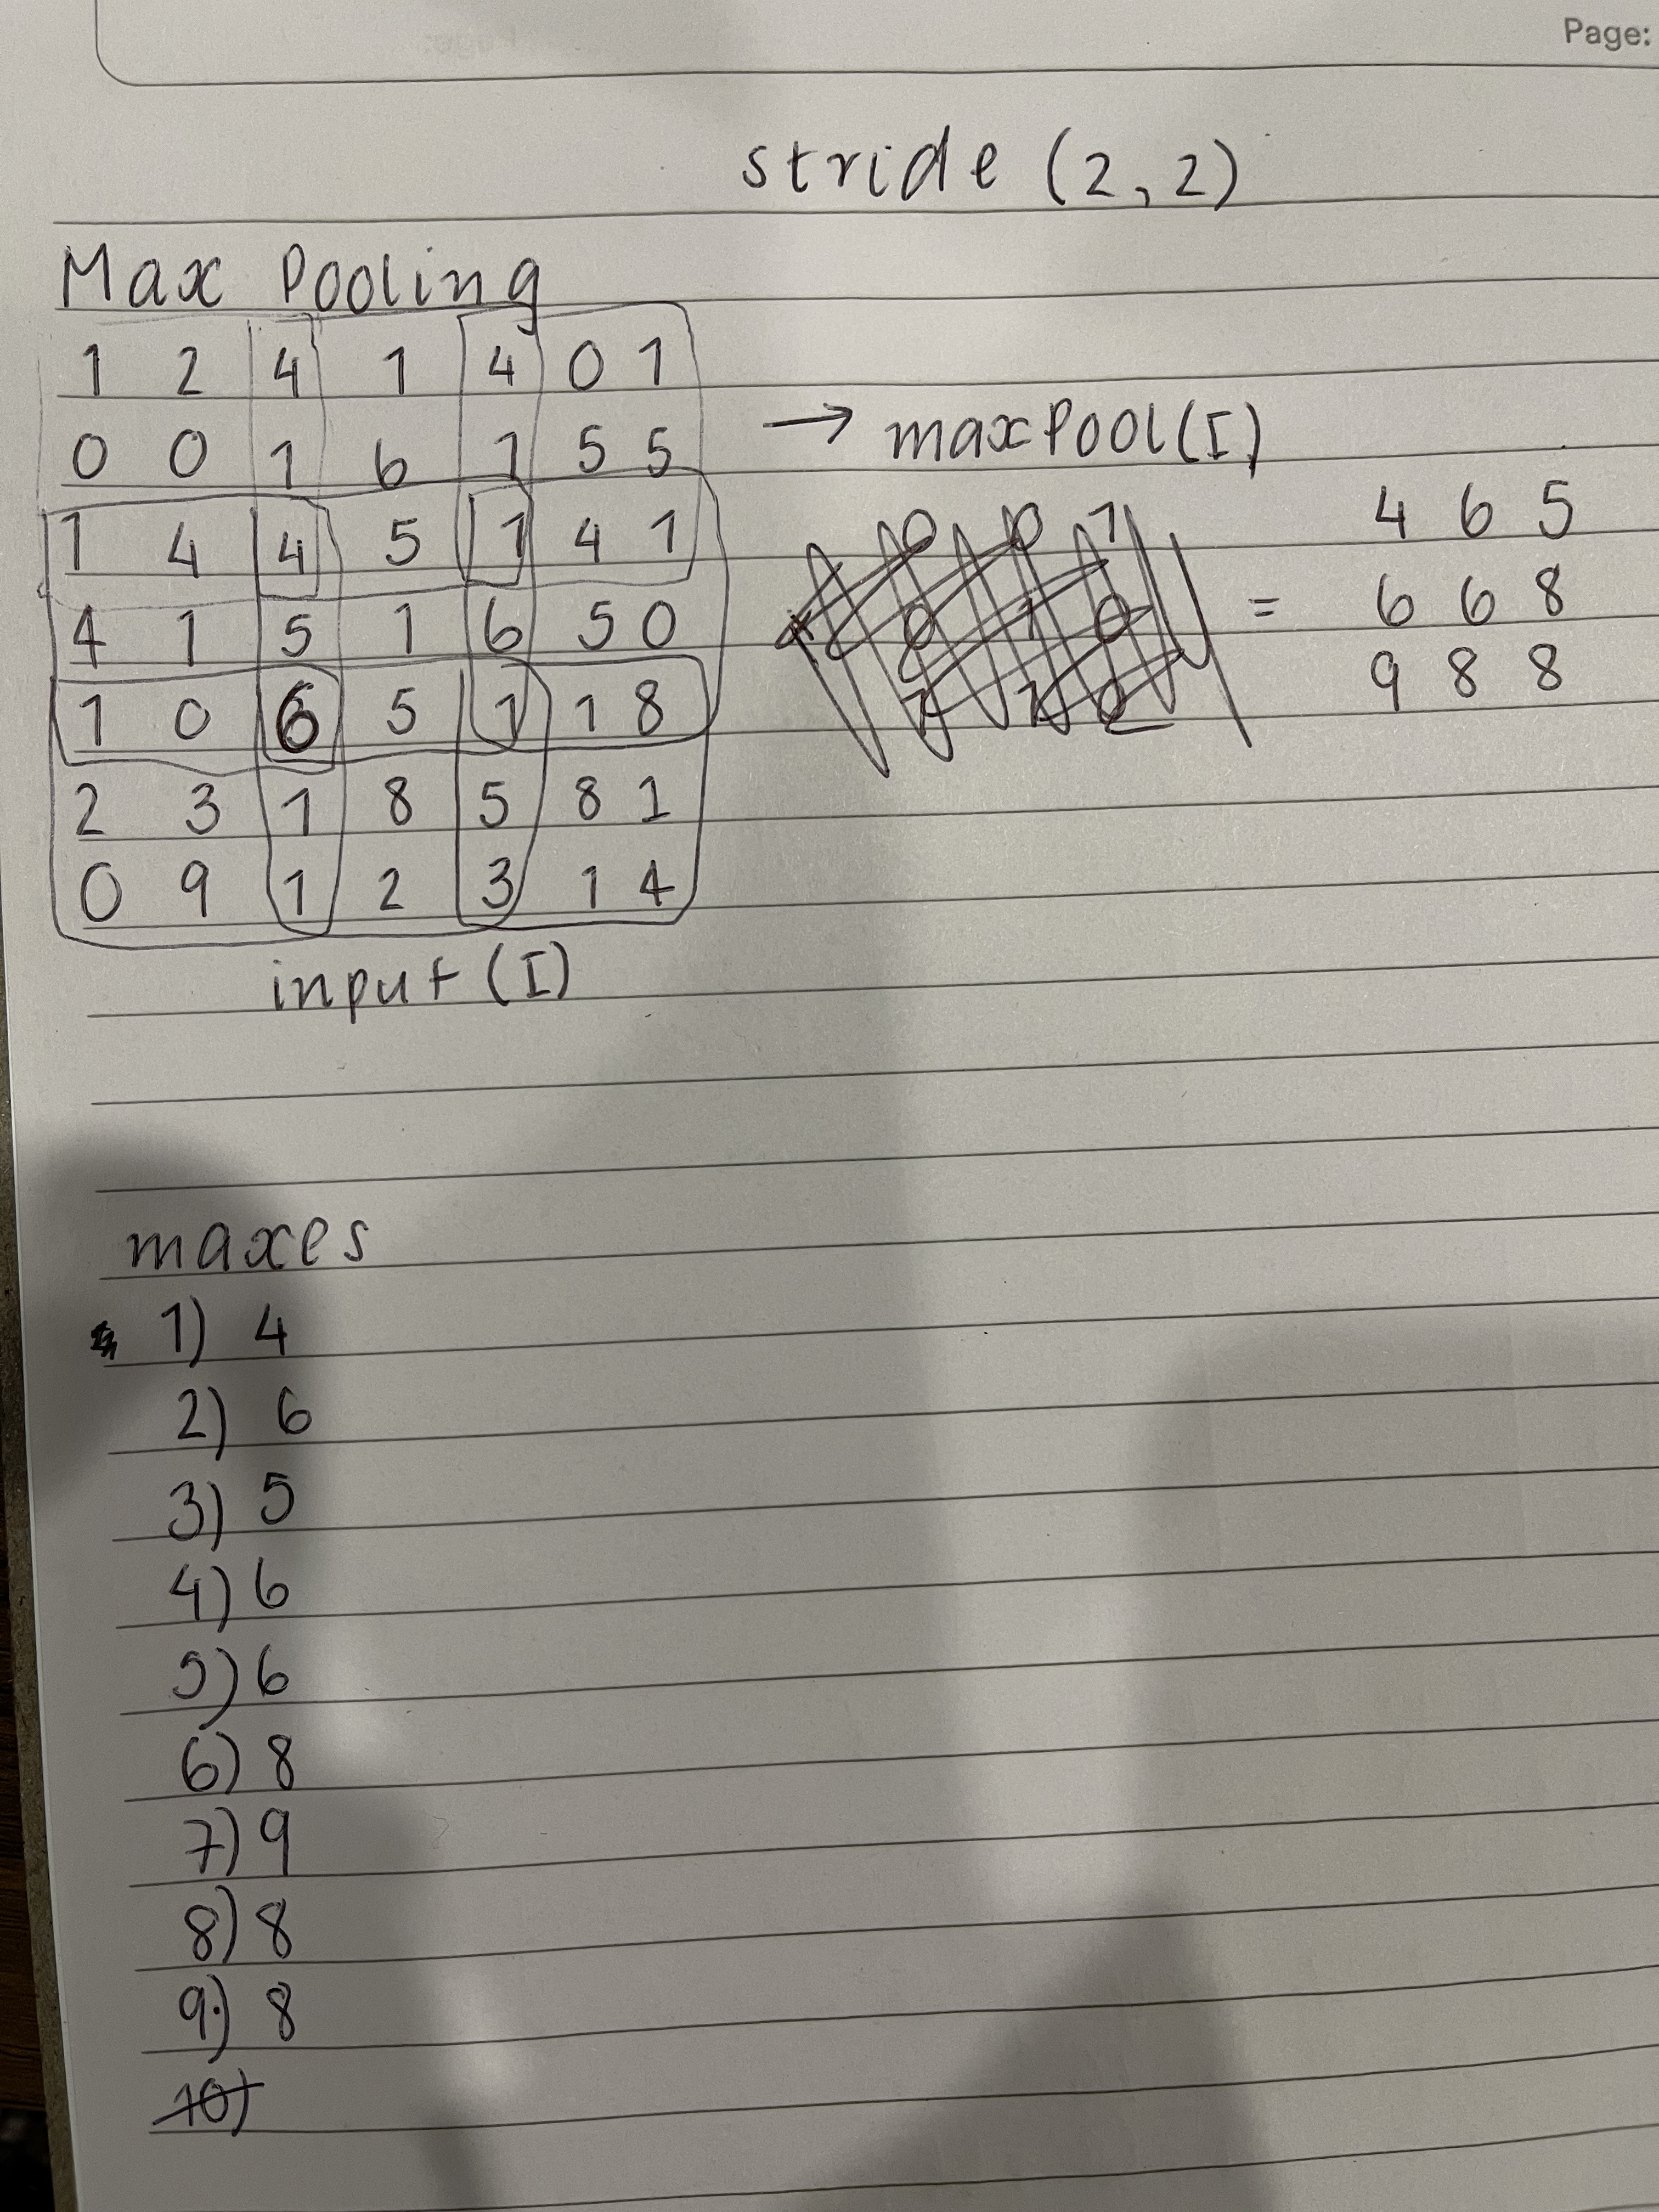 Page:
stride (2,2)
Max Pooling
1 2 4 1 4 0 1
0 0 1 6 1 5 5
→ maxPool(I)
1 4 4 5 1 4 1
4 1 5 1 6 5 0
1 0 6 5 1 1 8
2 3 1 8 5 8 1
0 9 1 2 3 1 4
input (I)
= 4 6 5
6 6 8
9 8 8
maxes
1) 4
2) 6
3) 5
4) 6
5) 6
6) 8
7) 9
8) 8
9) 8
10)